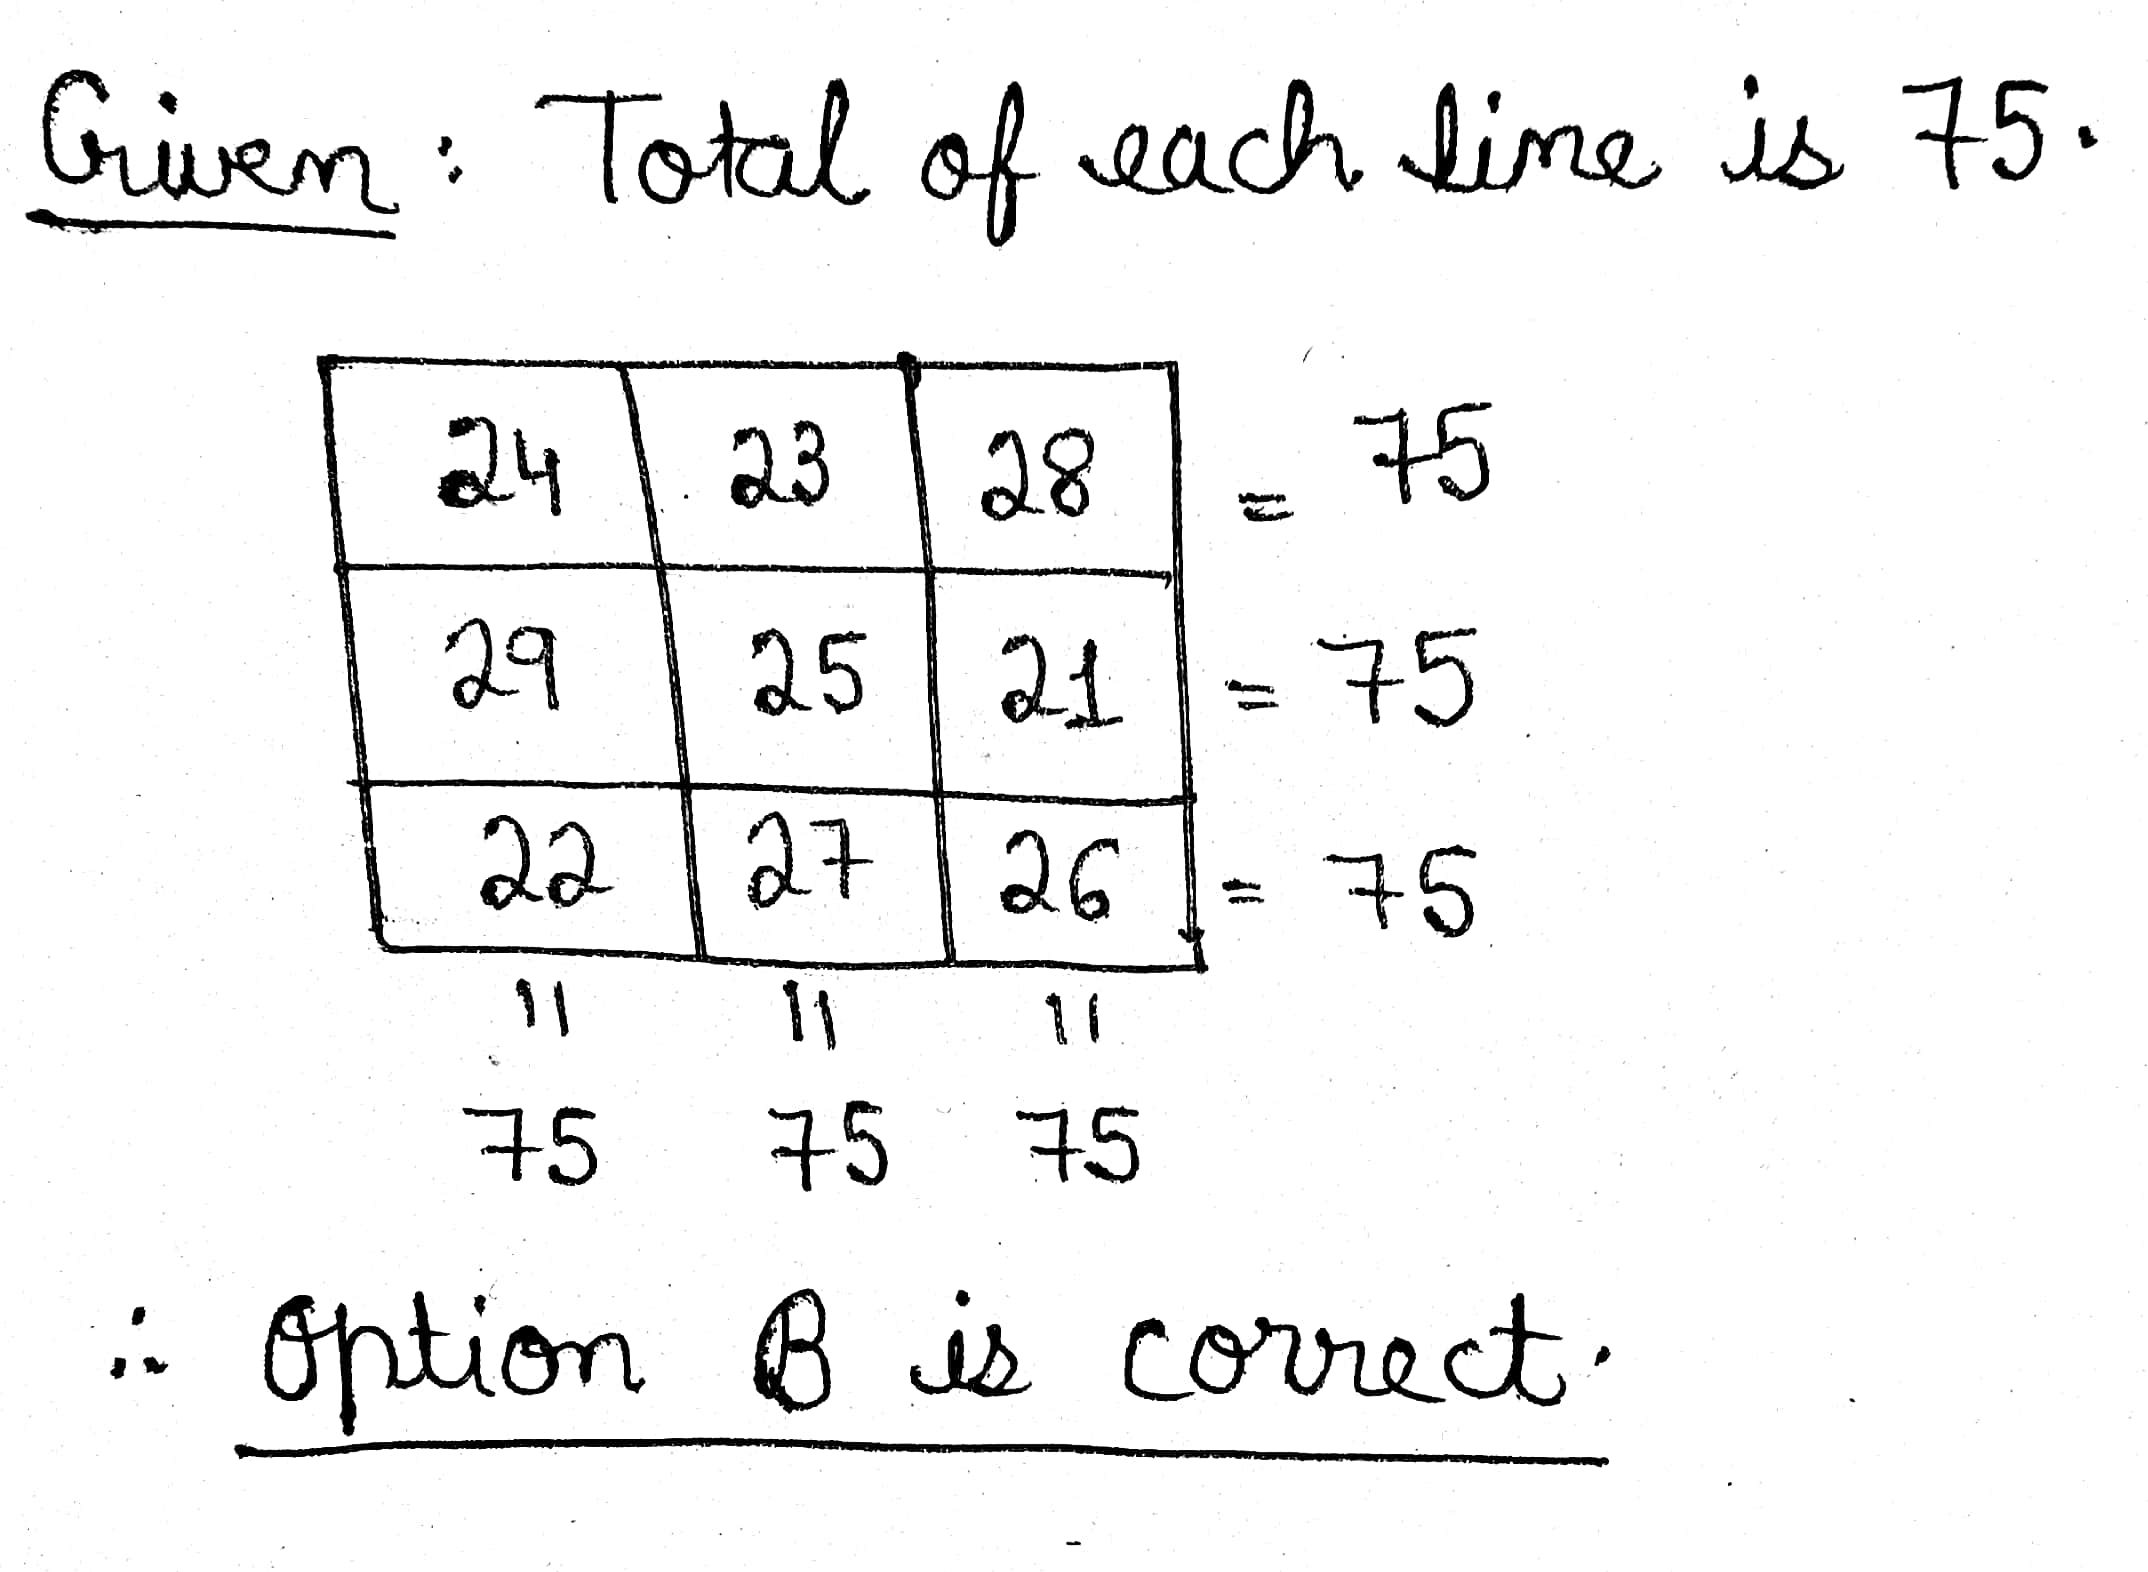 Given: Total of each line is 75.
24 23 28 = 75
29 25 21 = 75
22 27 26 = 75
= = =
75 75 75
∴ Option B is correct.